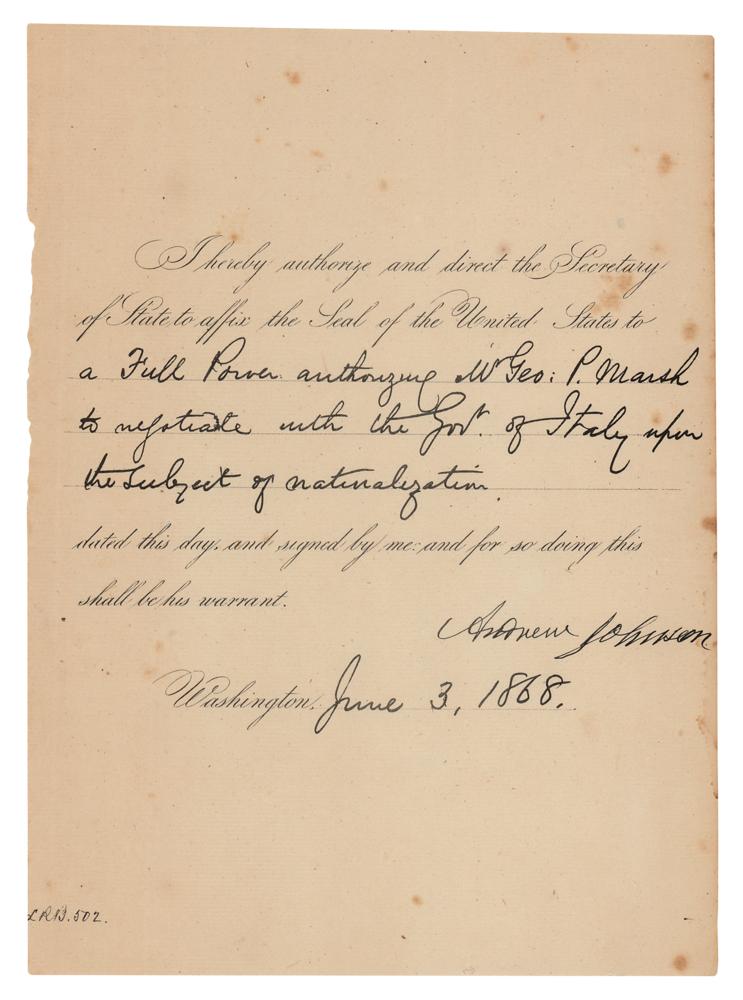 I hereby authorize and direct the Secretary
of State to affix the Seal of the United States to
a Full Power authorizing Mr Geo: P. Marsh
to negotiate with the Govt. of Italy upon
the subject of naturalization,
dated this day, and signed by me: and for so doing this
shall be his warrant.
Andrew Johnson
Washington, June 3, 1868.
L.R.B. 502.